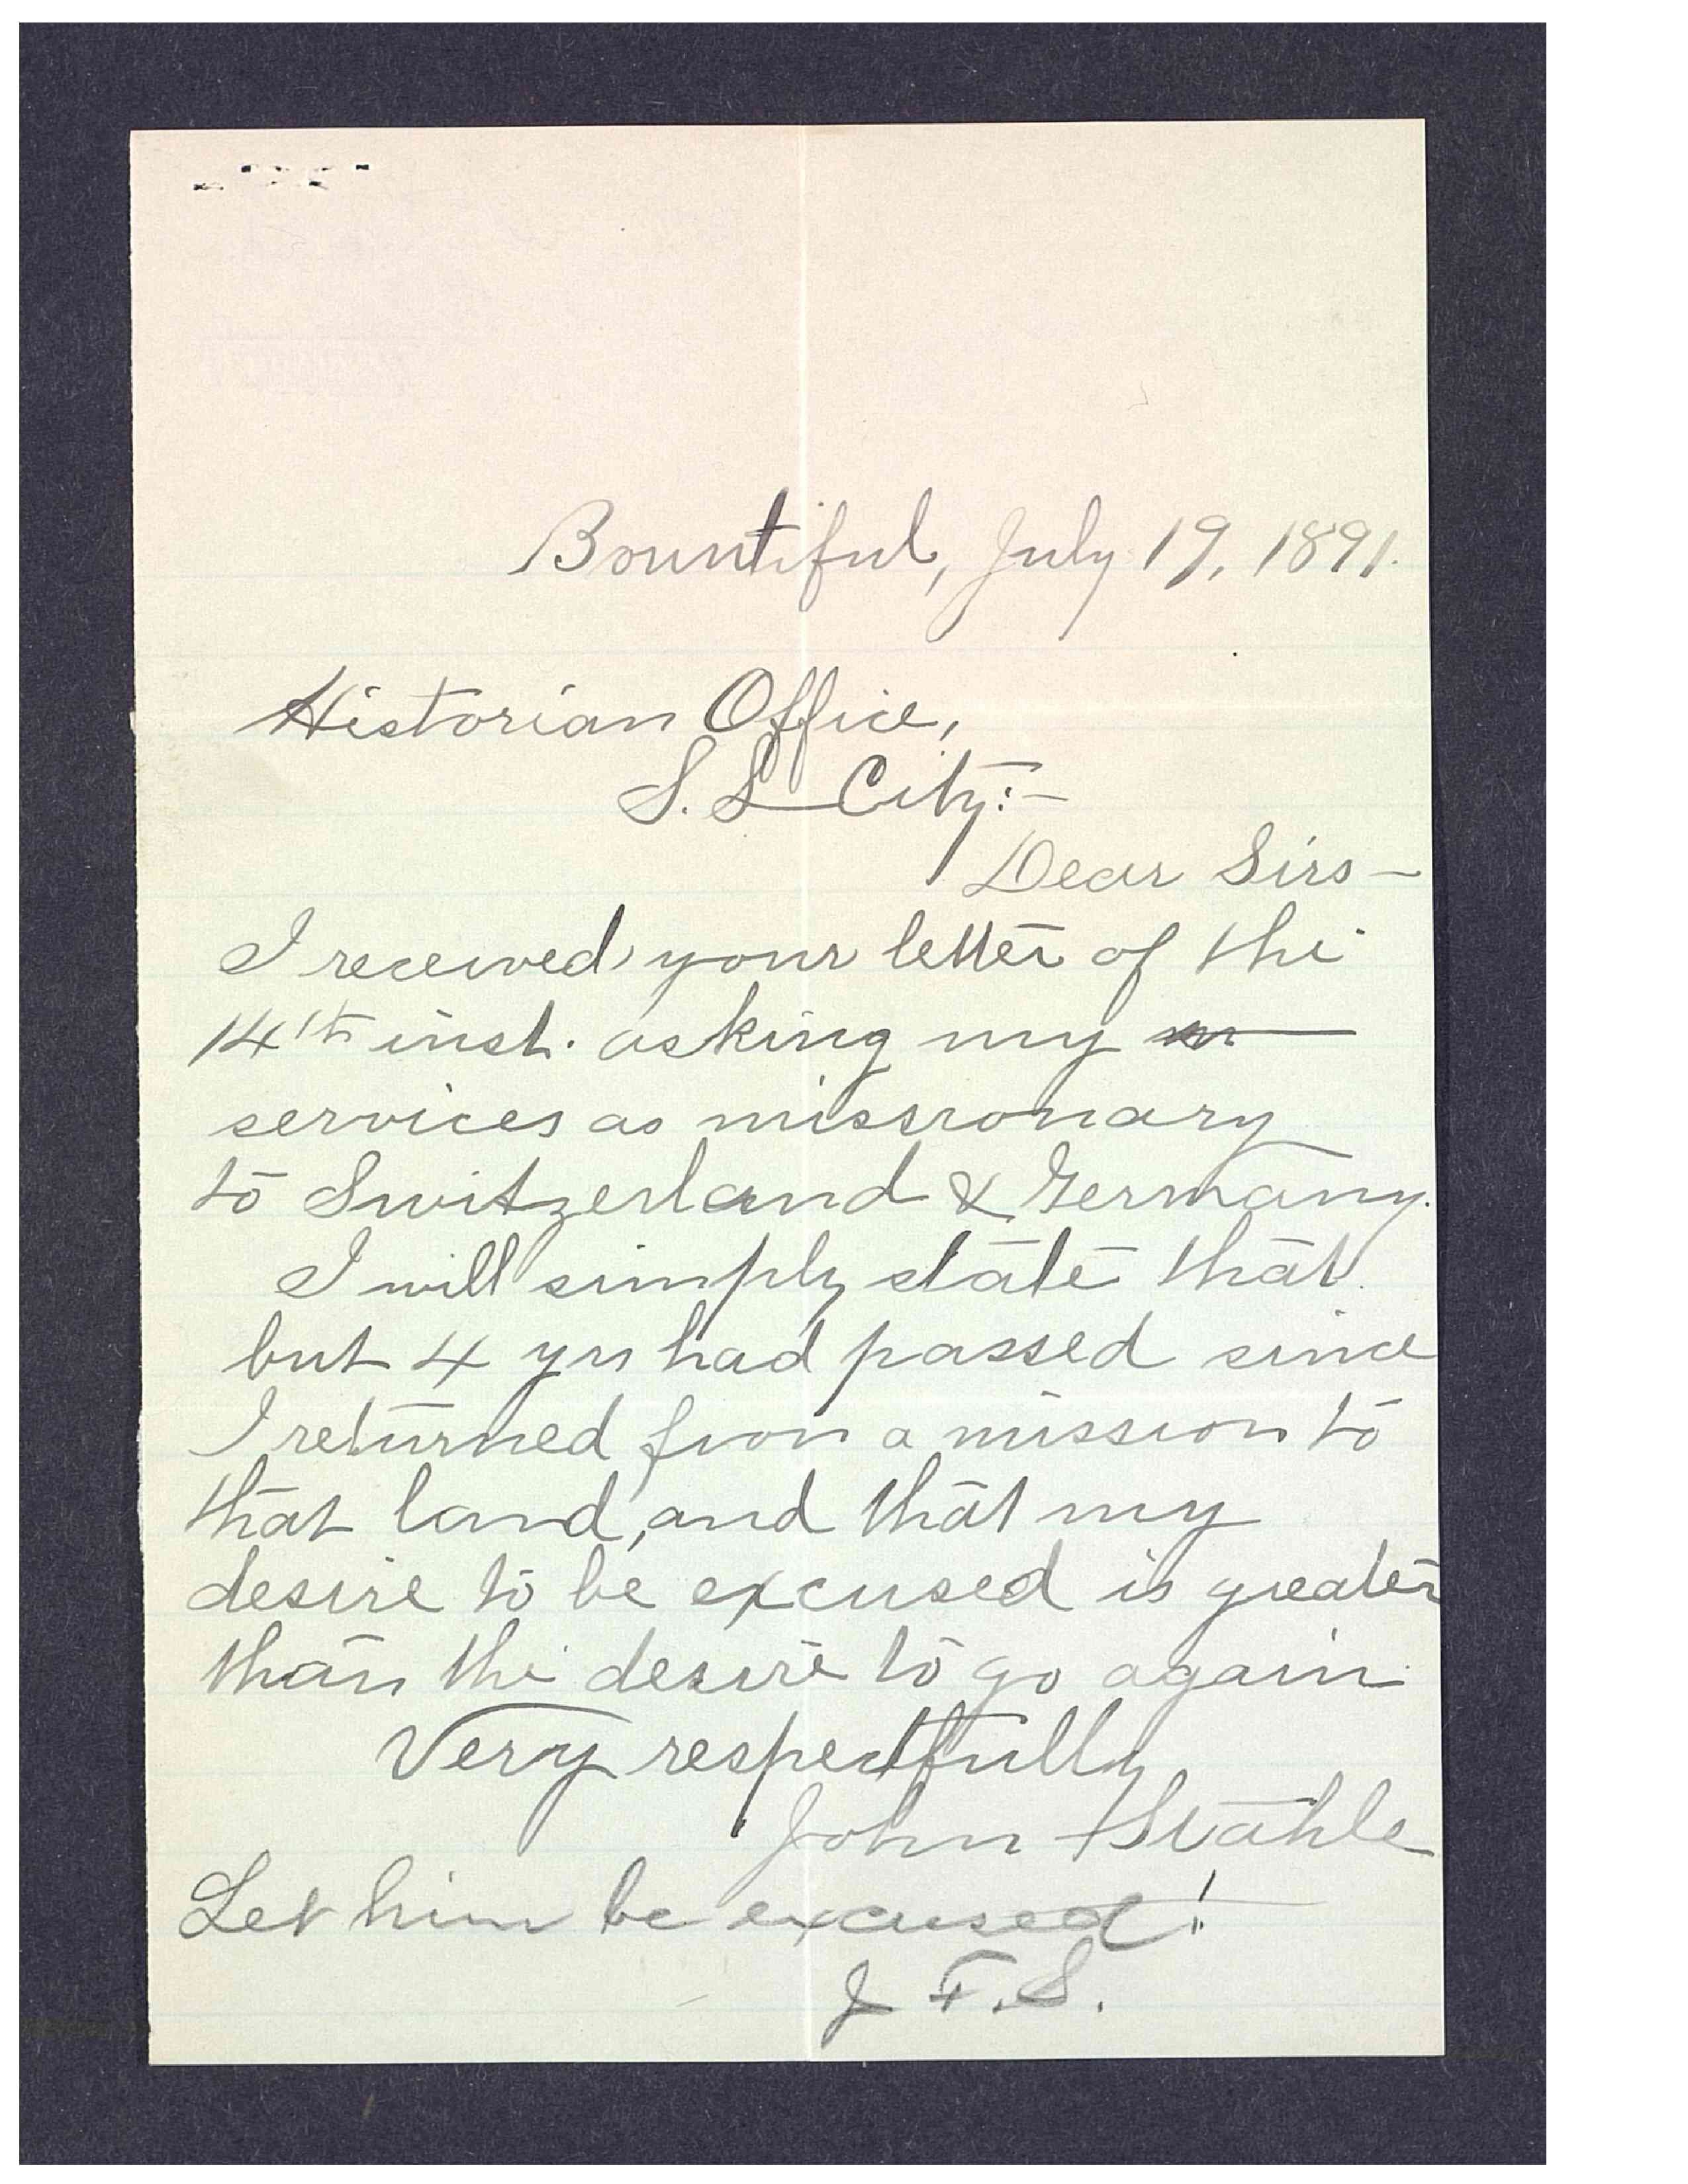 Bountiful, July 19, 1891.
Historian Office,
S. L City:-
Dear Sirs -
I received your letter of the
14th inst. asking my
services as missionary
to Switzerland & Germany.
I will simply state that
but 4 yrs had passed since
I returned from a mission to
that land, and that my
desire to be excused is greater
than the desire to go again.
Very respectfully
John Stahle
Let him be excused!
J F. S.